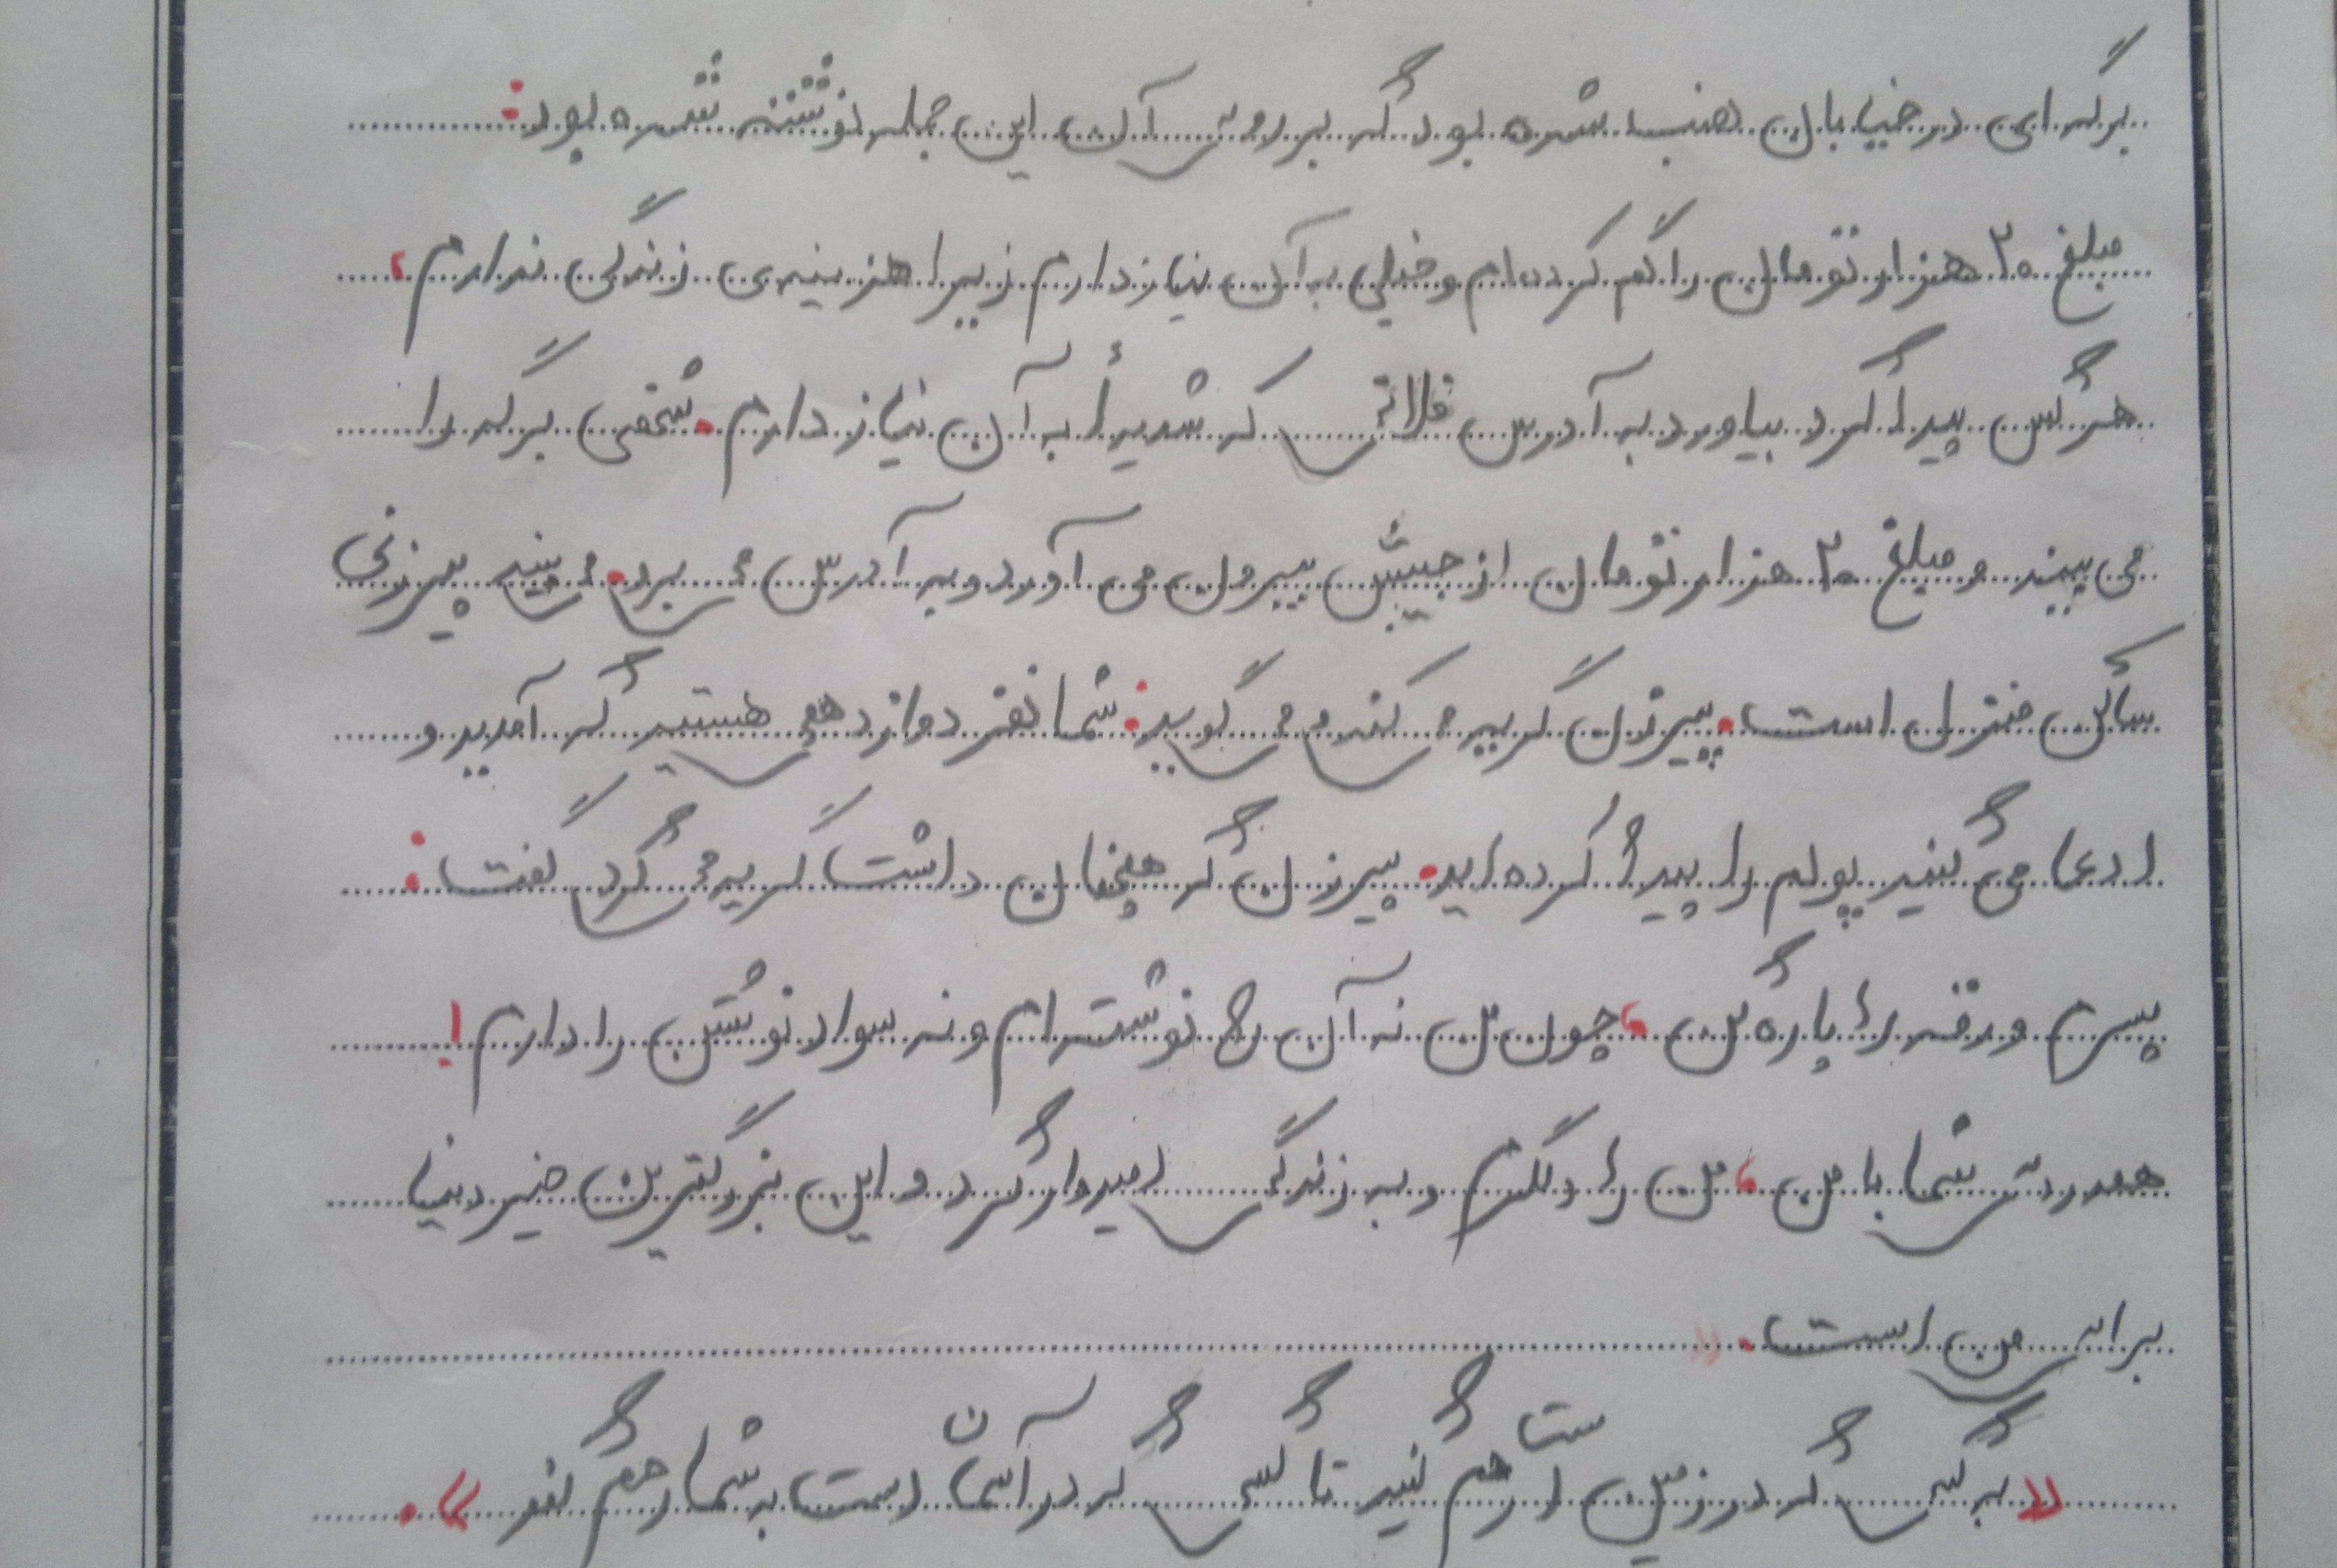 برگه ای در خیابان نصب شده بود که بر روی آن این جمله نوشته شده بود:
مبلغ ۲۰ هزار تومان را گم کرده ام و خیلی به آن نیاز دارم زیرا هزینه ی زندگی ندارم،
هر کس پیدا کرد بیاورد به آدرس فلانی که شدیدأ به آن نیاز دارم. شخصی برگه را
می بیند و مبلغ ۲۰ هزار تومان از جیبش بیرون می آورد و به آدرس می برد. می بیند پیرزنی
ساکن منزل است. پیرزن گریه می کند و می گوید: شما نفر دوازدهمی هستید که آمدید و
ادعا می کنید پولم را پیدا کرده اید. پیرزن که همچنان داشت گریه می کرد گفت:
پسرم ورقه را پاره کن، چون من نه آن را نوشته ام و نه سواد نوشتن را دارم!
همدردی شما با من، من را دلگرم و به زندگی امیدوار کرد و این بزرگترین خیر دنیا
برای من است.
«به کسی که در زمین است رحم کنید تا کسی که در آسمان است به شما رحم کند».